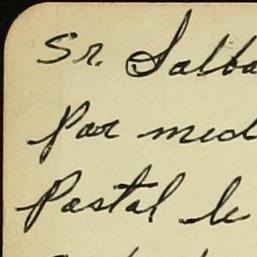 Sr. Salba
Por med
Postal le